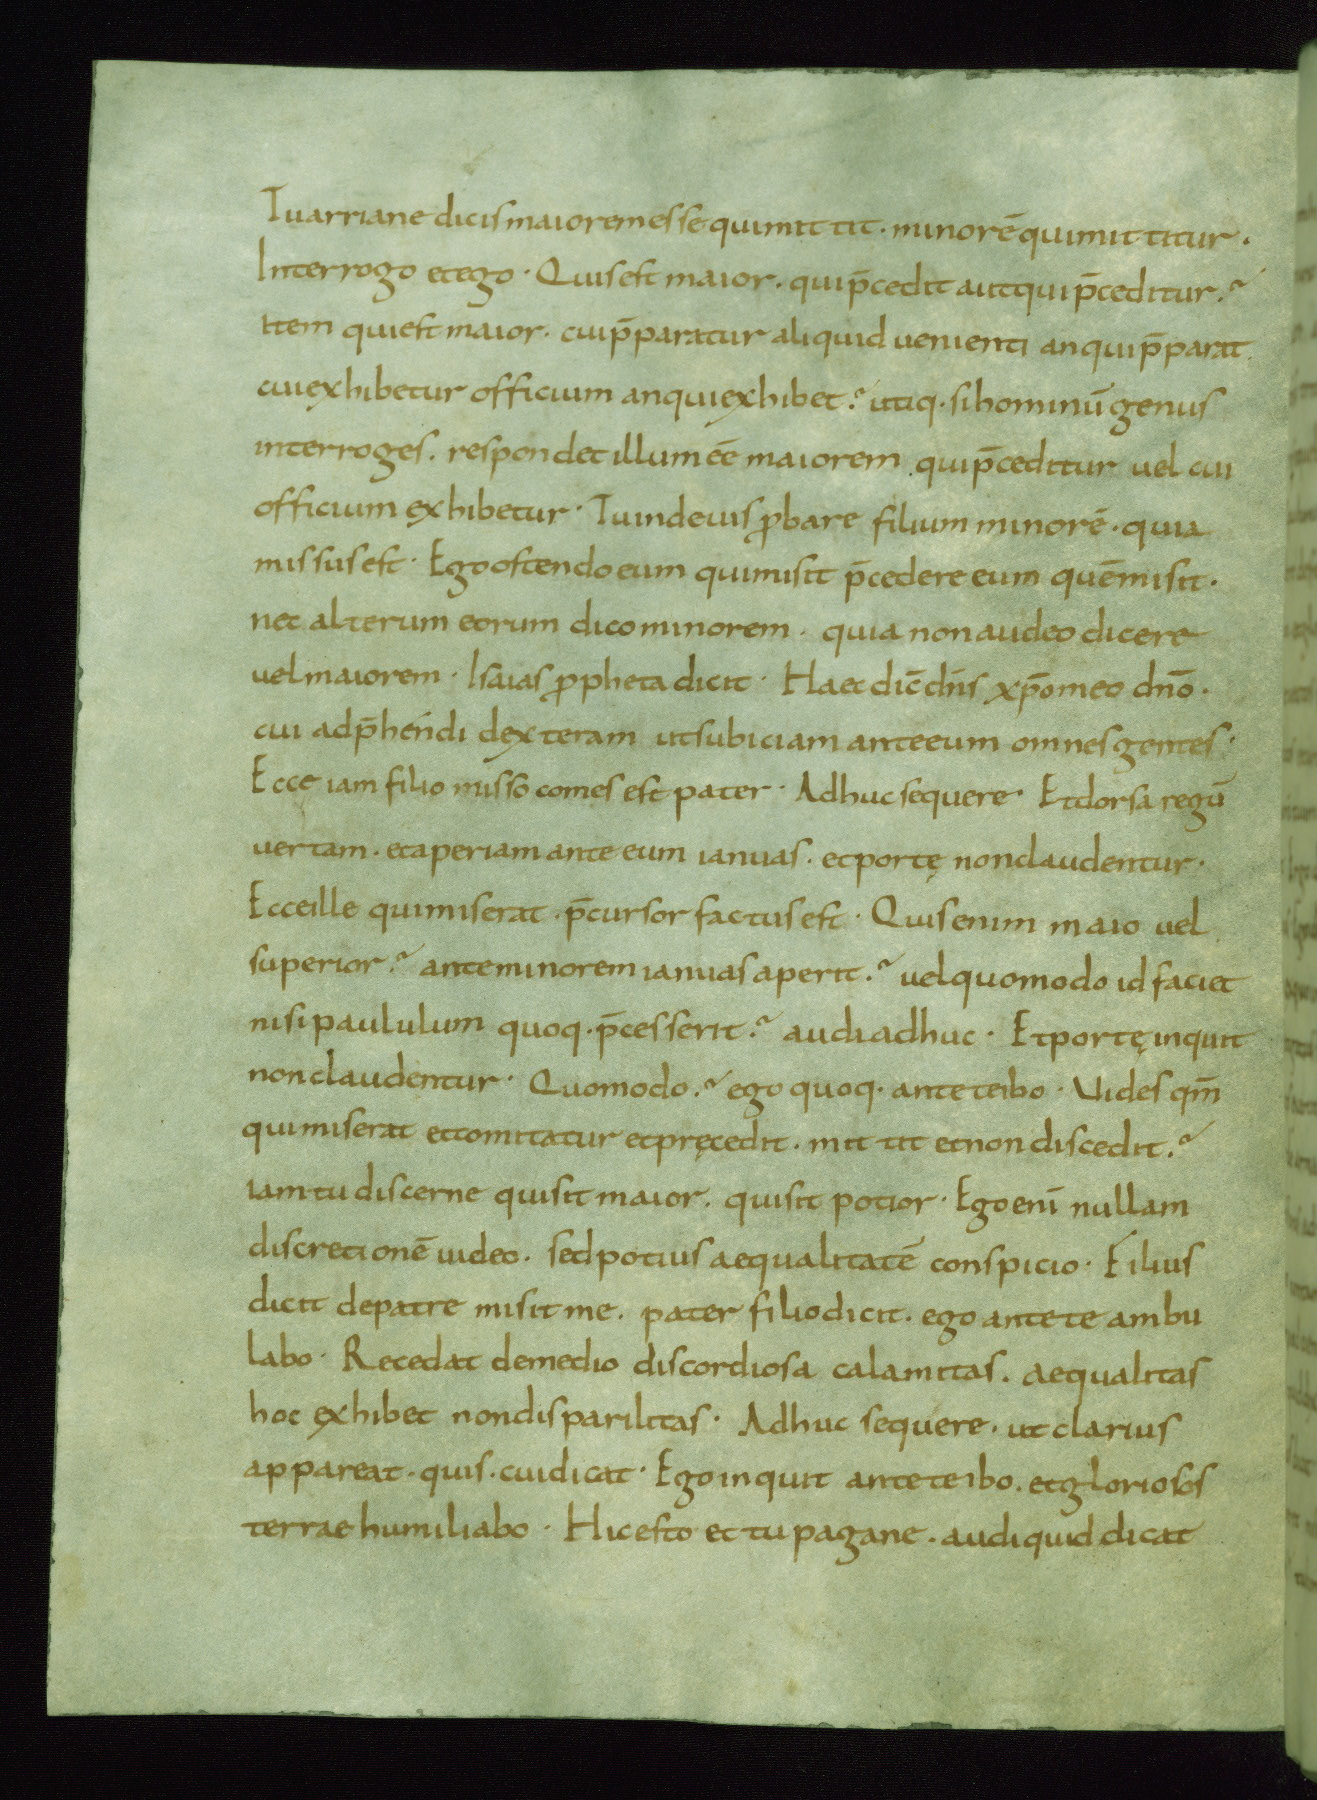 Tu arriane dicis maiorem esse qui mittit · minorē qui mittitur ·
Interrogo et ego · Quis est maior · qui p̄cedit aut qui p̄ceditur ·?
Item qui est maior · cui p̄paratur aliquid uenienti an qui p̄parat
cui exhibetur officium an qui exhibet ·? utiq · si hominū genus
interroges · respondet illum eē maiorem qui p̄ceditur uel cui
officium exhibetur · Tu inde uis ꝓbare filium minorē · quia
missus est · Ego ostendo eum qui misit p̄cedere eum quē misit ·
nec alterum eorum dico minorem · quia non audeo dicere
uel maiorem · Isaias ꝓpheta dicit · Haec dic̄ dn̄s xp̄o meo dn̄o ·
cui adp̄hendi dexteram ut subiciam ante eum omnes gentes ·
Ecce iam filio misso comes est pater · Adhuc sequere · Et dorsa regū
uertam · et aperiam ante eum ianuas · et portę non claudentur ·
Ecce ille qui miserat · p̄cursor factus est · Quis enim maio uel
superior ·? ante minorem ianuas aperit ·? uel quomodo id faciet
nisi paululum quoq · p̄cesserit ·? audi adhuc · Et portę inquit
non claudentur · Quomodo ·? ego quoq · ante te ibo · Uides qm̄
qui miserat et comitatur et pręcedit · mittit et non discedit ·?
iam tu discerne qui sit maior · qui sit potior · Ego enī nullam
discretionē uideo · sed potius aequalitatē conspicio · Filius
dicit de patre misit me · pater filio dicit · ego ante te ambu
labo · Recedat de medio discordiosa calamitas · aequalitas
hoc exhibet non disparilitas · Adhuc sequere · ut clarius
appareat · quis · cui dicat · Ego inquit ante te ibo · et gloriosos
terrae humiliabo · Hic esto et tu pagane · audi quid dicat